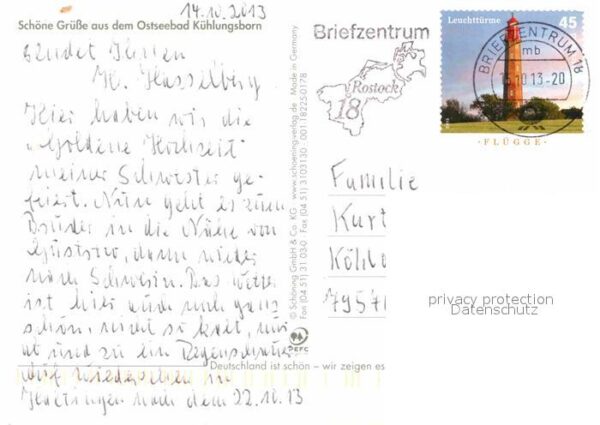 14.10.2013
Schöne Grüße aus dem Ostseebad Kühlungsborn
sendet Ihnen
H. Hasselberg
Hier haben wir die
"Goldene Hochzeit"
meiner Schwester ge-
feiert. Nun geht es zum
Bruder in die Nähe von
Güstrow, dann wieder
nach Schwerin. Das Wetter
ist hier auch noch ganz
schön, nicht so kalt, nur
ab und zu ein Regenschauer
Auf Wiedersehen in
Haltingen nach dem 22.10.13
© Schöning GmbH & Co. KG · www.schoening-verlag.de · Made in Germany
Fon (04 51) 31 03-0 · Fax (04 51) 3103130 · 001 18225 0178
PEFC
Deutschland ist schön – wir zeigen es
Briefzentrum
Rostock
18
Leuchttürme
45
BRIEFZENTRUM 18
mb
10.13-20
· FLÜGGE ·
Familie
Kurt
79571
privacy protection
Datenschutz